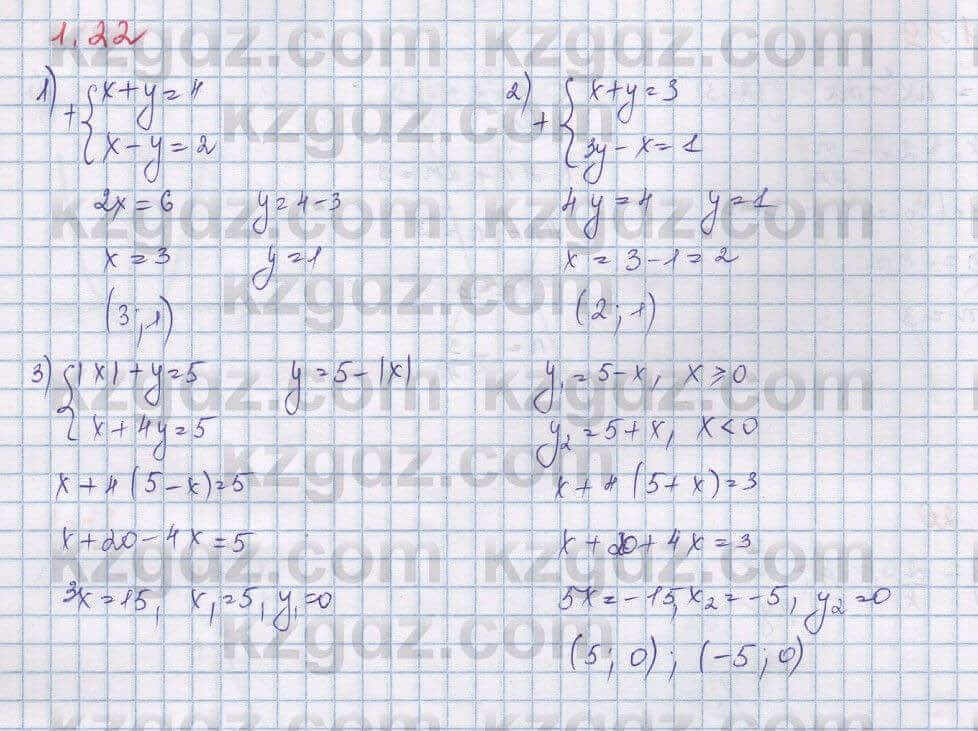 1.22
1) + { x+y=4
x-y=2
2x=6 y=4-3
x=3 y=1
(3;1)
2) + { x+y=3
3y-x=1
4y=4 y=1
x=3-1=2
(2;1)
3) { |x|+y=5 y=5-|x| y₁=5-x, x≥0
x+4y=5 y₂=5+x, x<0
x+4(5-x)=5 x+4(5+x)=3
x+20-4x=5 x+20+4x=3
3x=15, x₁=5, y₁=0 5x=-15, x₂=-5, y₂=0
(5;0); (-5;0)
kzgdz.com kzgdz.com
kzgdz.com
kzgdz.com kzgdz.com
kzgdz.com
kzgdz.com kzgdz.com
kzgdz.com
kzgdz.com kzgdz.com
kzgdz.com
kzgdz.com kzgdz.com